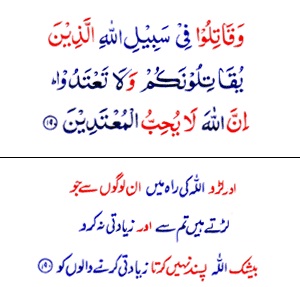 وَقَاتِلُوْا فِیْ سَبِیْلِ اللّٰهِ الَّذِیْنَ
یُقَاتِلُوْنَكُمْ وَلَا تَعْتَدُوْا ؕ
اِنَّ اللّٰهَ لَا یُحِبُّ الْمُعْتَدِیْنَ ﴿۱۹۰﴾
اور لڑو اللہ کی راہ میں ان لوگوں سے جو
لڑتے ہیں تم سے اور زیادتی نہ کرو
بیشک اللہ پسند نہیں کرتا زیادتی کرنے والوں کو ﴿۱۹۰﴾